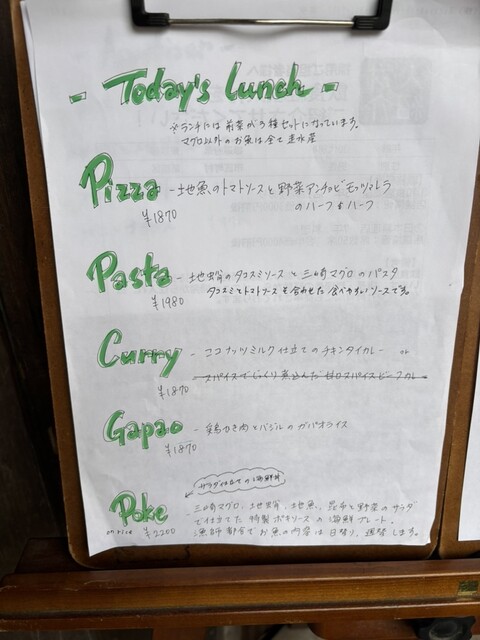 - Today's Lunch -
※ランチには前菜が3種セットになっています。
マグロ以外のお魚は全て逗水産
Pizza - 地魚のトマトソースと野菜アンチョビモッツァレラ
のハーフ&ハーフ
¥1870
Pasta - 地蛸のタコスミソースと三崎マグロのパスタ
タコスミとトマトソースを合わせた食べやすいソースです。
¥1980
Curry - ココナッツミルク仕立てのチキンタイカレー or
スパイスでじっくり煮込んだ甘口スパイスビーフカレー
¥1870
Gapao - 鶏ひき肉とバジルのガパオライス
¥1870
サラダ仕立ての海鮮丼
Poke 三崎マグロ、地蛸、地魚、昆布と野菜のサラダ
で仕立てた特製ポキソースの海鮮プレート。
on rice ¥2200 漁師都合でお魚の内容は日替り、週替します。